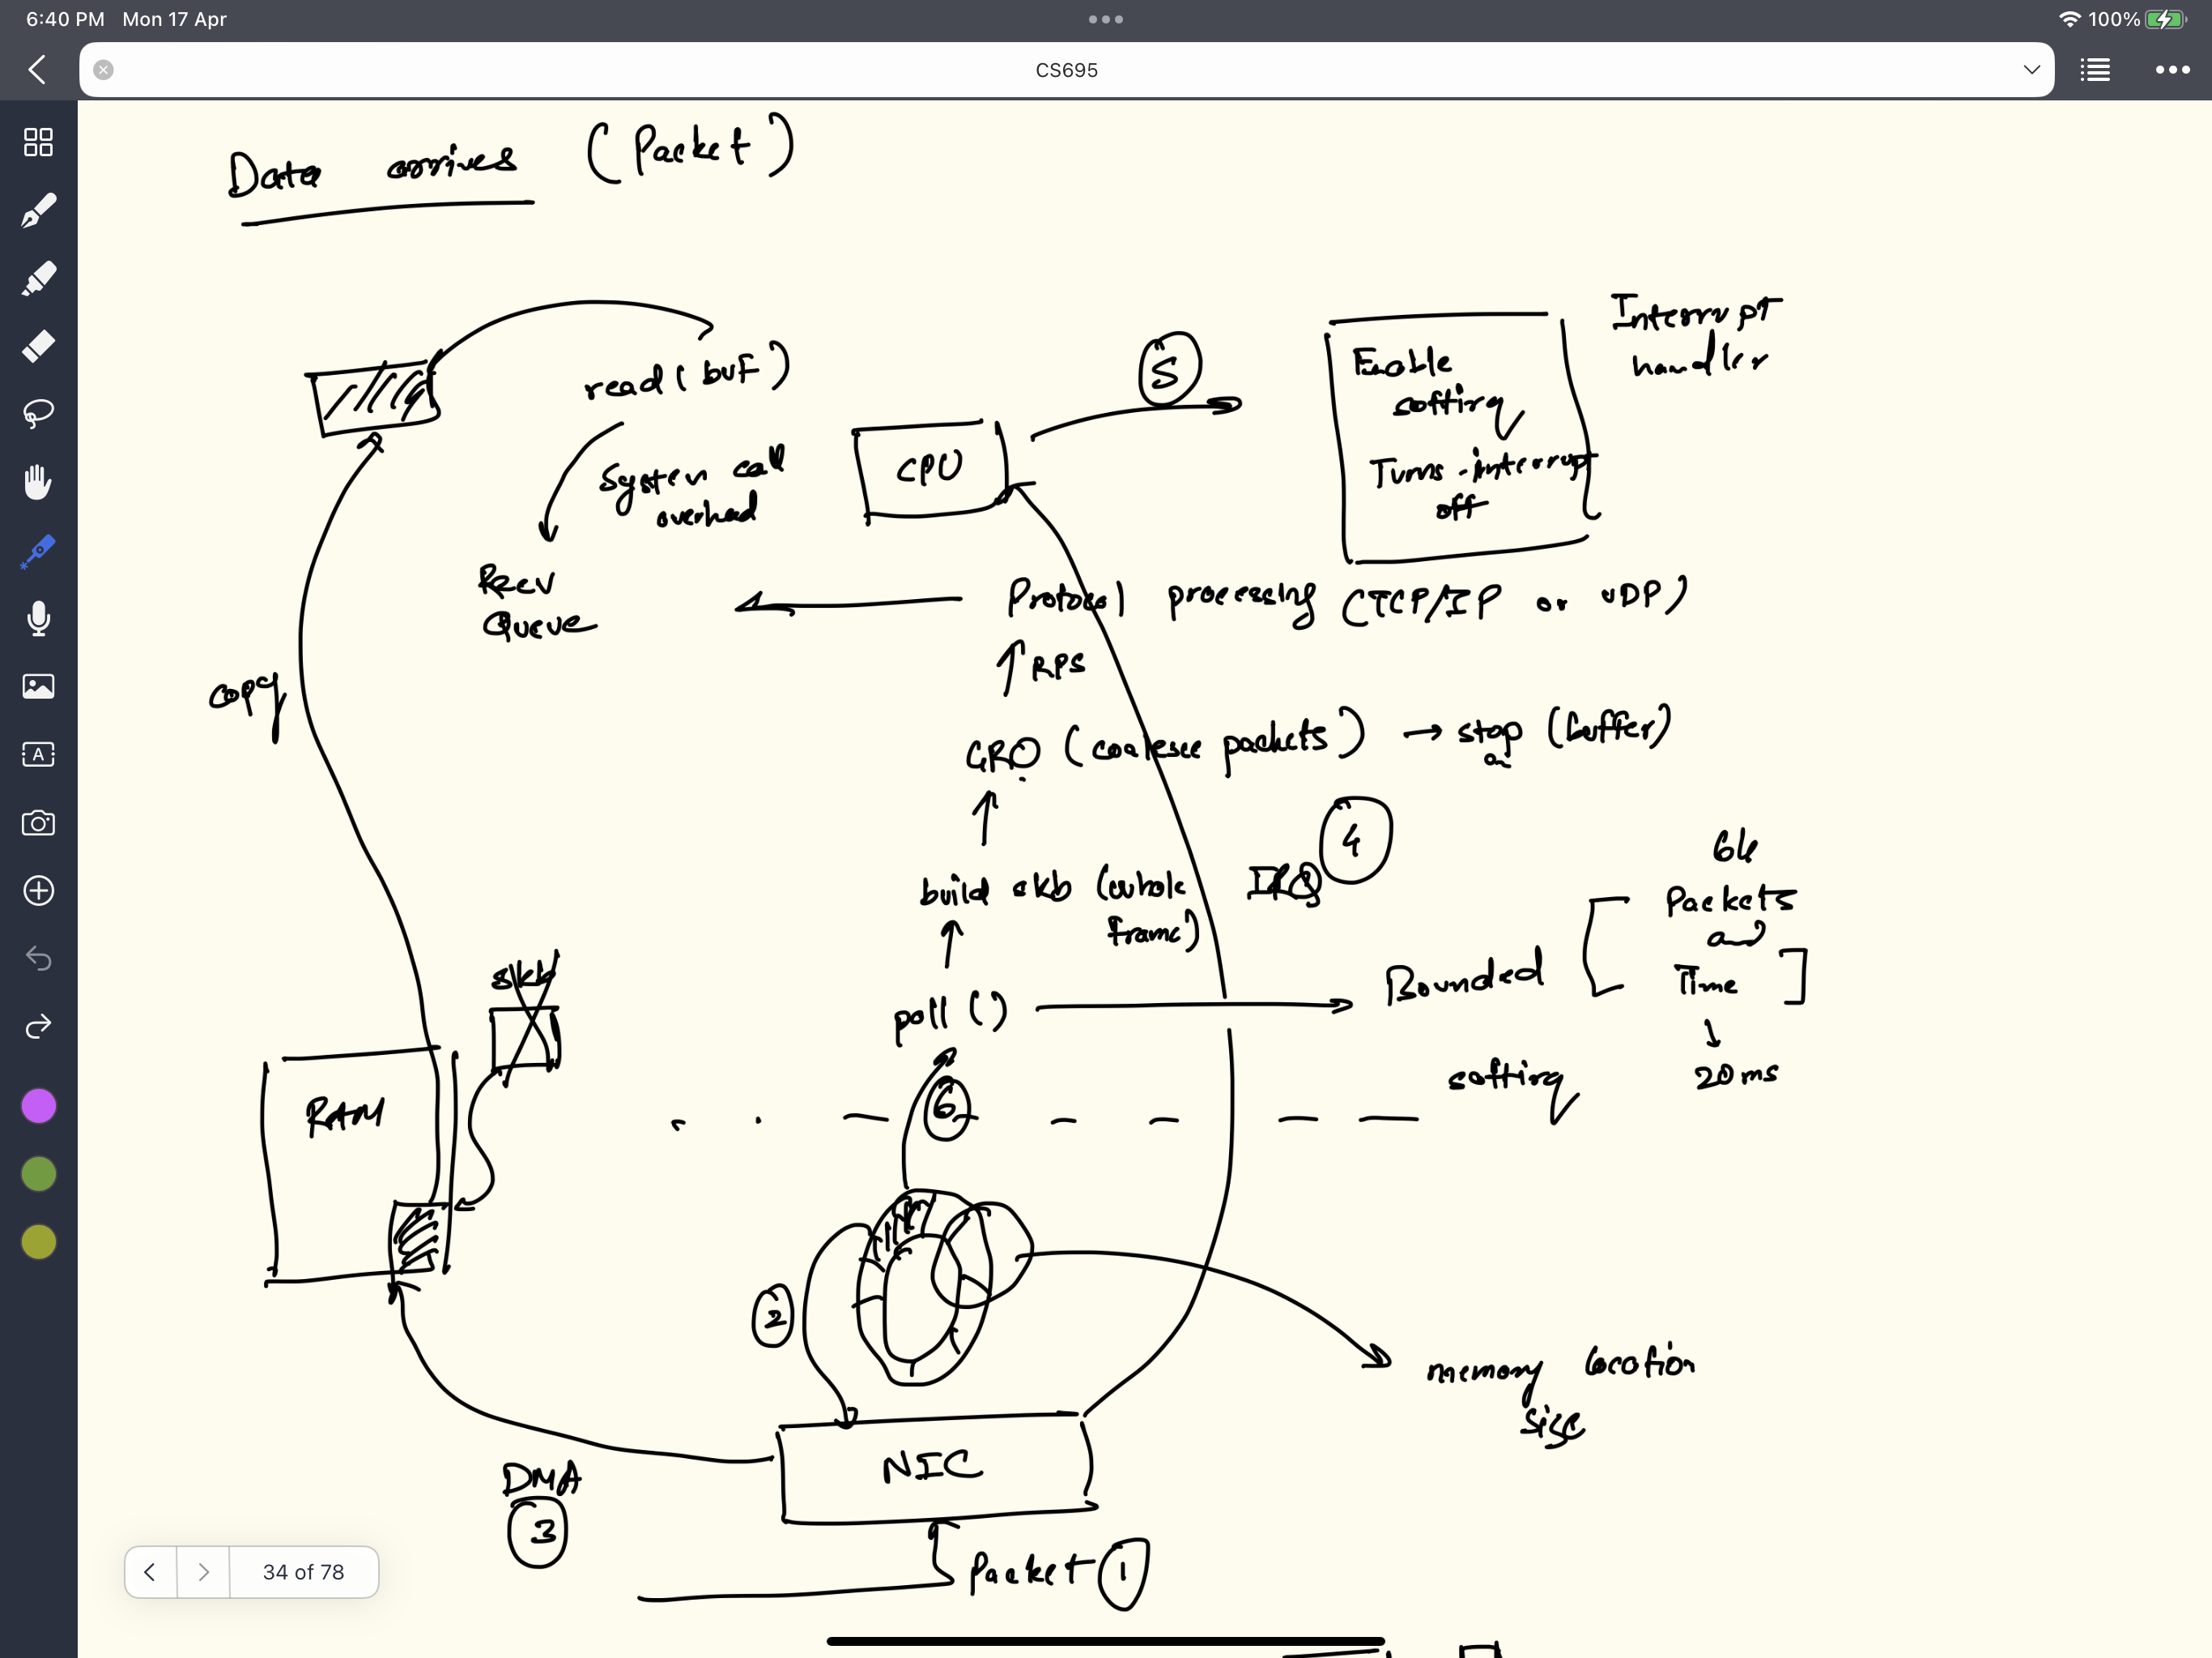 6:40 PM Mon 17 Apr
100%
CS695
Data arrives (Packet)
Interrupt
handler
read(buf)
5
Enable
softirq
Turns interrupt
off
System call
overhead
CPU
Recv
Queue
Protocol processing (TCP/IP or UDP)
RPS
copy
GRO (coalesce packets) → stop (buffer)
4
IRQ
64
Packets
build skb (whole
frame)
Bounded
Time
skb
poll()
20ms
softirq
6
RAM
2
memory location
size
NIC
DMA
3
Packet 1
34 of 78